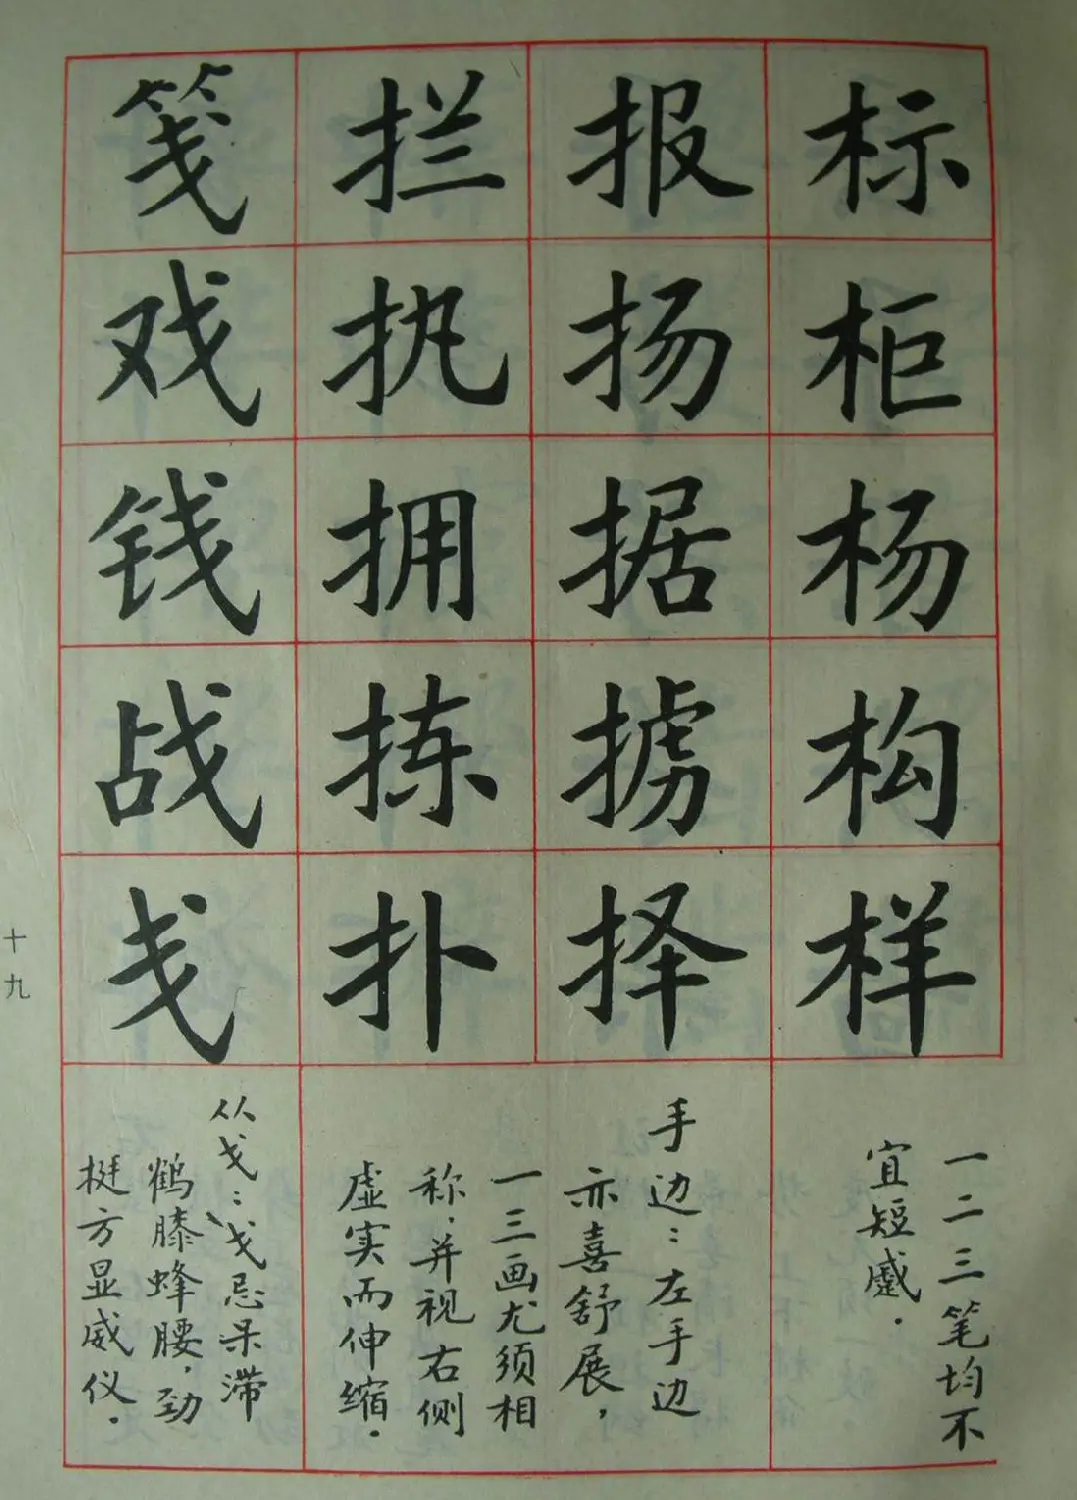 标柜杨构样
一二三笔均不
宜短蹙.
报扬据掳择
手边:左手边
亦喜舒展,
拦执拥拣扑
一三画尤须相
称.并视右侧
虚实而伸缩.
笺戏钱战戋
从戈:戈忌呆滞
鹤膝蜂腰,劲
挺方显威仪.
十九